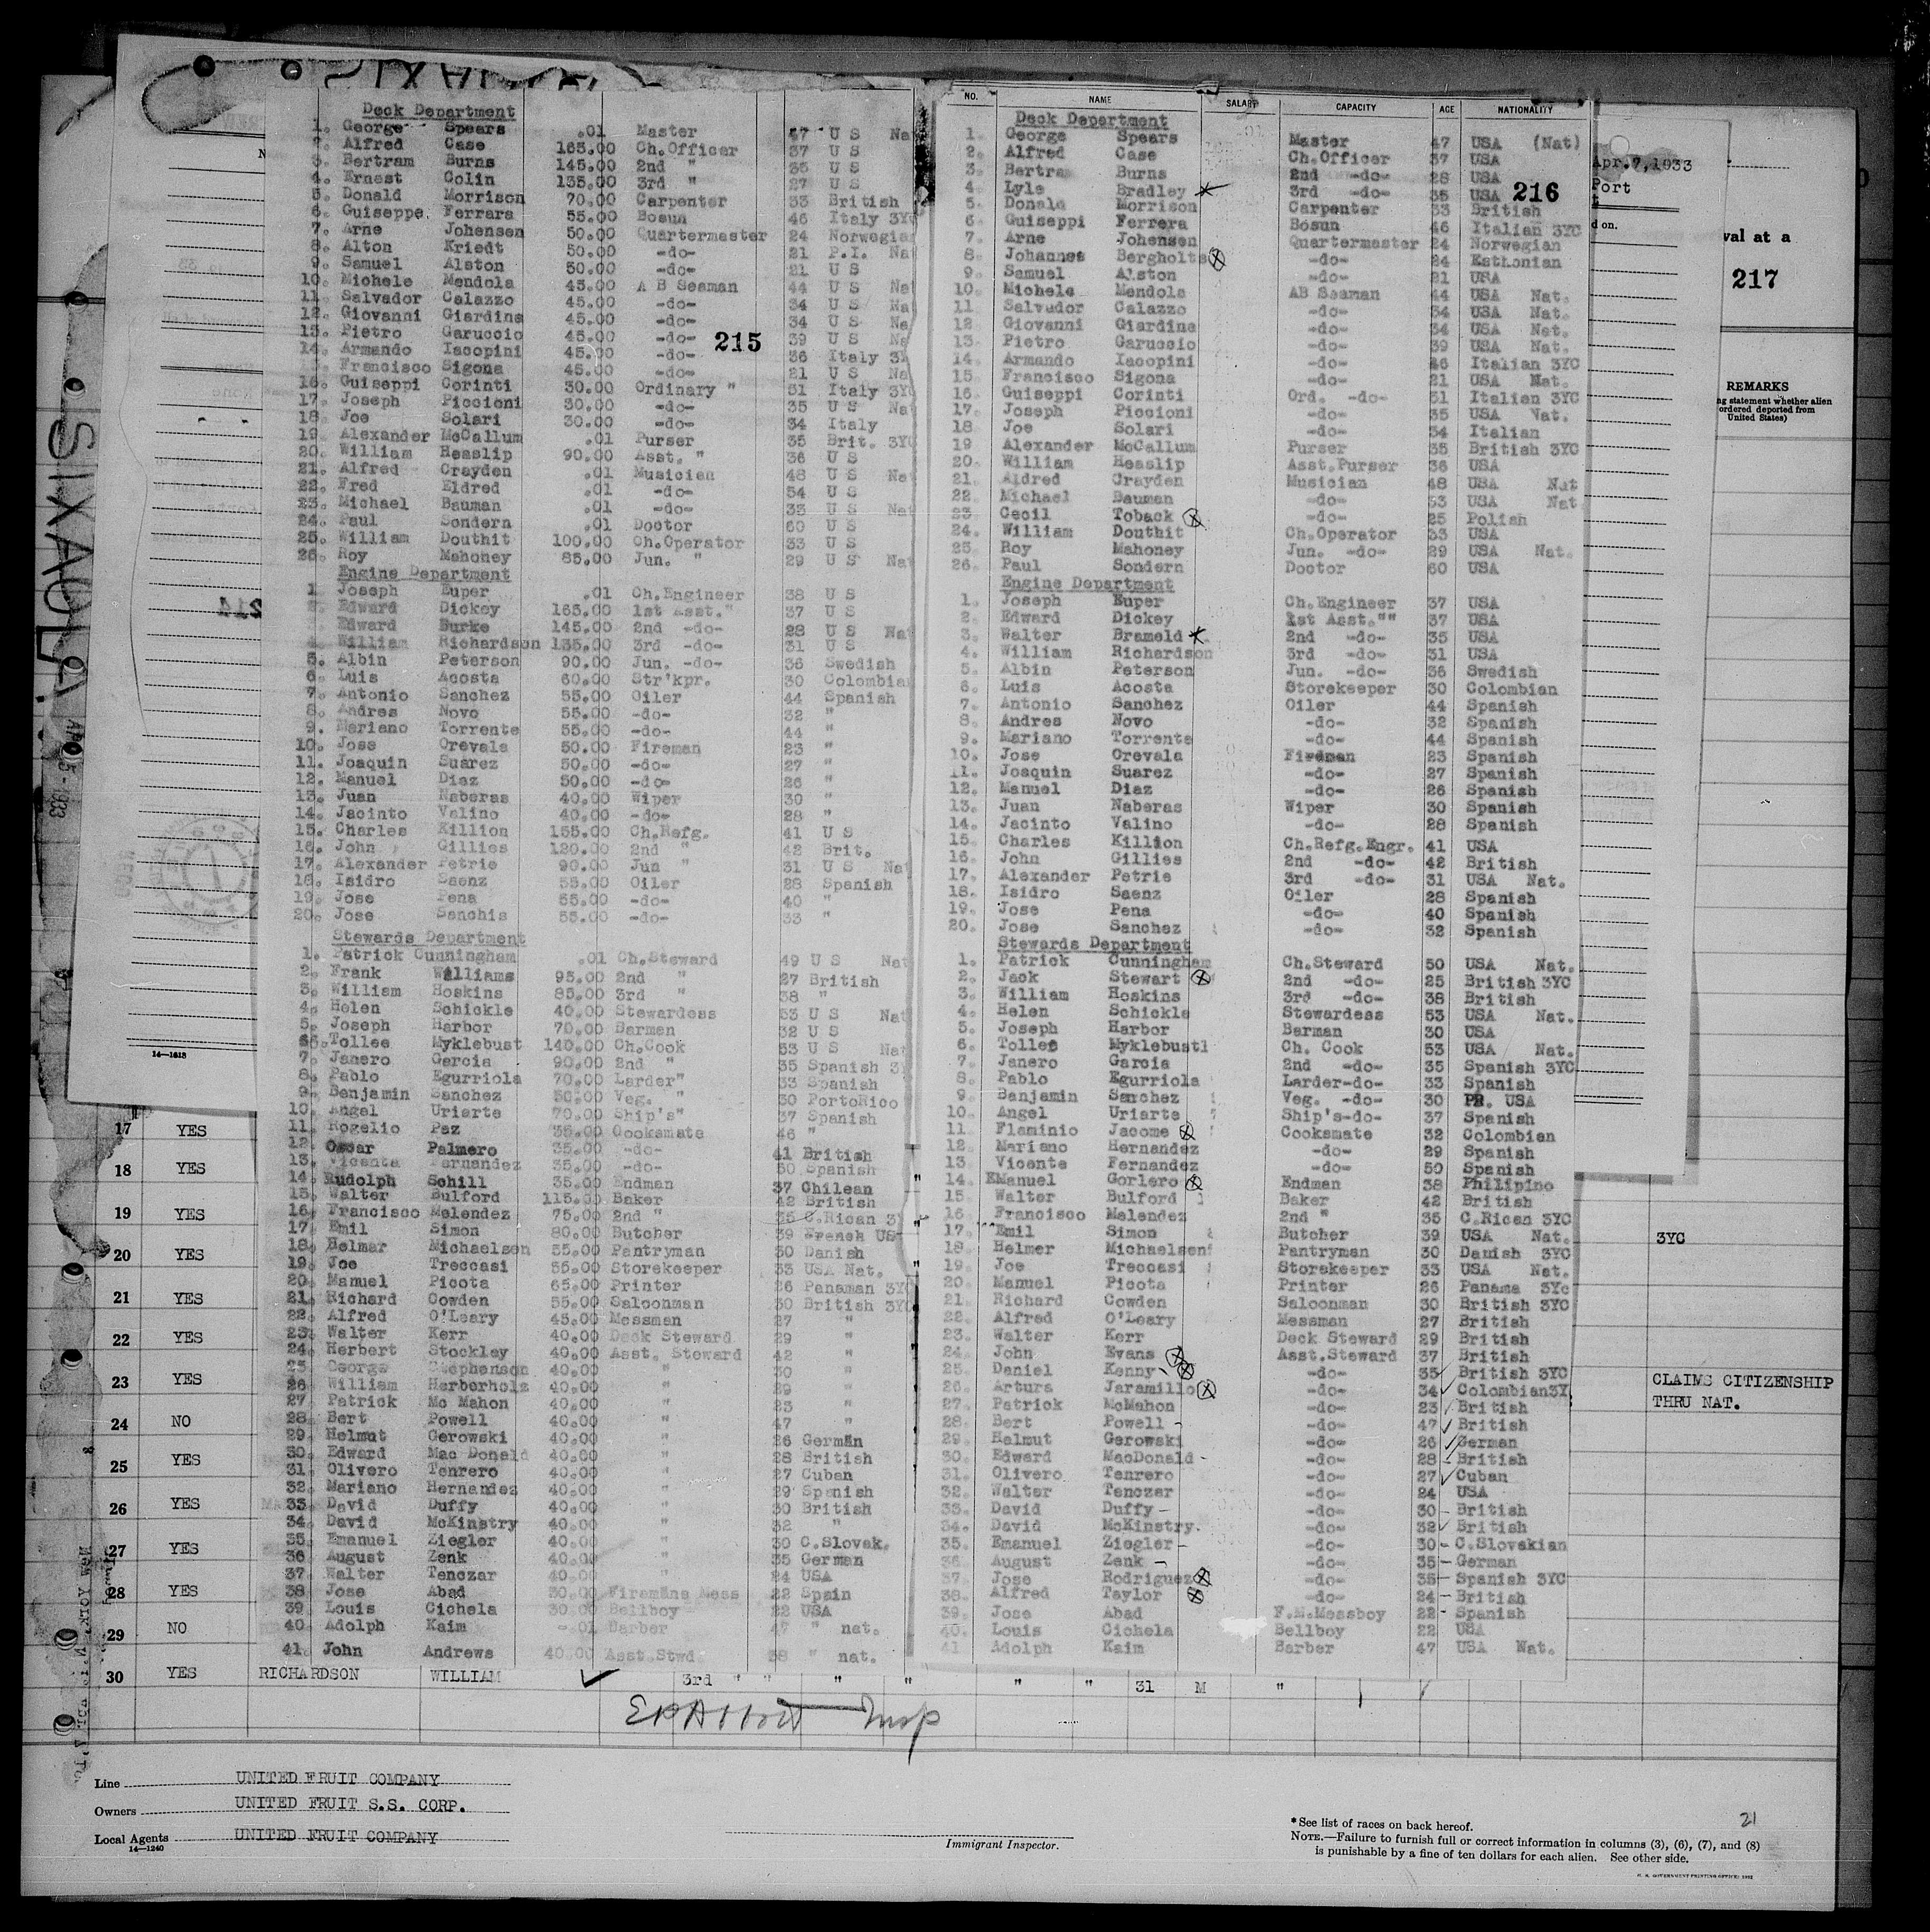 SIXAOLA
Deck Department
1. George Spears .01 Master 47 U S Na
2. Alfred Case 165.00 Ch.Officer 37 U S
3. Bertram Burns 145.00 2nd " 35 U S
4. Ernest Colin 135.00 3rd " 27 U S
5. Donald Morrison 70.00 Carpenter 33 British
6. Guiseppe Ferrara 55.00 Bosun 46 Italy 3YC
7. Arne Johensen 50.00 Quartermaster 24 Norwegian
8. Alton Kriedt 50.00 -do- 21 P.I. Na
9. Samuel Alston 50.00 -do- 21 U S
10. Michele Mendola 45.00 A B Seaman 44 U S Na
11. Salvador Calazzo 45.00 -do- 34 U S Na
12. Giovanni Giardina 45.00 -do- 34 U S Na
13. Pietro Caruccio 45.00 -do- 39 U S Na
215
14. Armando Iacopini 45.00 -do- 36 Italy 3Y
Francisco Sigona 45.00 -do- 21 U S Na
16. Guiseppi Corinti 30.00 Ordinary " 51 Italy 3YC
17. Joseph Piccioni 30.00 -do- 35 U S Na
18. Joe Solari 30.00 -do- 34 Italy
19. Alexander McCallum .01 Purser 35 Brit. 3YC
20. William Heaslip 90.00 Asst. " 36 U S
21. Alfred Crayden .01 Musician 48 U S Na
22. Fred Eldred .01 -do- 54 U S
23. Michael Bauman .01 -do- 33 U S Nat
24. Paul Sondern .01 Doctor 60 U S
25. William Douthit 100.00 Ch.Operator 33 U S
26. Roy Mahoney 85.00 Jun. " 29 U S Nat
Engine Department
1. Joseph Euper .01 Ch.Engineer 38 U S
Edward Dickey 165.00 1st Asst." 37 U S
Edward Burke 145.00 2nd -do- 28 U S Na
4. William Richardson 135.00 3rd -do- 31 U S
5. Albin Peterson 90.00 Jun. -do- 36 Swedish
6. Luis Acosta 60.00 Str'kpr. 30 Colombian
7. Antonio Sanchez 55.00 Oiler 44 Spanish
8. Andres Novo 55.00 -do- 32 "
9. Mariano Torrente 55.00 -do- 44 "
10. Jose Crevale 50.00 Fireman 23 "
11. Joaquin Suarez 50.00 -do- 27 "
12. Manuel Diaz 50.00 -do- 26 "
13. Juan Naberas 40.00 Wiper 30 "
14. Jacinto Valino 40.00 -do- 28 "
15. Charles Killion 155.00 Ch.Refg. 41 U S
16. John Gillies 120.00 2nd " 42 Brit.
17. Alexander Petrie 90.00 Jun " 31 U S Na
18. Isidro Saenz 55.00 Oiler 28 Spanish
19. Jose Pena 55.00 -do- 40 "
20. Jose Sanchis 55.00 -do- 33 "
Stewards Department
1. Patrick Cunningham .01 Ch.Steward 49 U S Nat
2. Frank Williams 95.00 2nd " 27 British
3. William Hoskins 85.00 3rd " 38 "
4. Helen Schickle 40.00 Stewardess 53 U S Nat
5. Joseph Harbor 70.00 Barman 32 U S
6. Tollee Myklebust 140.00 Ch.Cook 53 U S Nat
7. Janero Garcia 90.00 2nd " 35 Spanish 3Y
8. Pablo Egurriola 70.00 Larder" 33 Spanish
9. Benjamin Sanchez 50.00 Veg. " 30 PortoRico
10. Angel Uriarte 70.00 Ship's" 37 Spanish
11. Rogelio Paz 35.00 Cooksmate 46 "
12. Oscar Palmero 35.00 -do- 41 British
13. Vicente Fernandez 35.00 -do- 50 Spanish
14. Rudolph Schill 35.00 Endman 37 Chilean "
15. Walter Bulford 115.00 Baker 42 British
16. Francisco Melendez 75.00 2nd " 35 C.Rican 3Y
17. Emil Simon 80.00 Butcher 39 French US
18. Helmar Michaelsen 55.00 Pantryman 30 Danish
19. Joe Treccasi 55.00 Storekeeper 33 USA Nat.
20. Manuel Picota 65.00 Printer 26 Panaman 3Y
21. Richard Cowden 55.00 Saloonman 30 British 3YC
22. Alfred O'Leary 45.00 Messman 27 "
23. Walter Kerr 40.00 Deck Steward 29 "
24. Herbert Stockley 40.00 Asst. Steward 42 "
25 George Stephenson 40.00 " 30 "
26 William Herberholz 40.00 " 29 "
27 Patrick Mc Mahon 40.00 " 23 "
28 Bert Powell 40.00 " 47 "
29. Helmut Gerowski 40.00 " 26 German
30. Edward Mac Donald 40.00 " 28 British
31. Olivero Tenrero 40.00 " 27 Cuban
32. Mariano Hernandez 40.00 " 29 Spanish
33. David Duffy 40.00 " 30 British
34. David McKinstry 40.00 " 32 "
35. Emanuel Ziegler 40.00 " 30 C.Slovak.
36 August Zenk 40.00 " 35 German
37 Walter Tenczar 40.00 " 24 USA
38 Jose Abad 30.00 Firemans Mess 22 Spain
39 Louis Cichela 30.00 Bellboy 22 USA
40 Adolph Kaim .01 Barber 47 " nat.
41 John Andrews 40.00 Asst.Stwd. 38 " nat.
NO. NAME SALARY CAPACITY AGE NATIONALITY
Deck Department
1. George Spears Master 47 USA (Nat)
2. Alfred Case Ch.Officer 37 USA
3. Bertra Burns 2nd -do- 28 USA
4. Lyle Bradley 3rd -do- 35 USA
216
5. Donald Morrison Carpenter 33 British
6. Guiseppi Ferrera Bosun 46 Italian 3YC
7. Arne Johensen Quartermaster 24 Norwegian
8. Johannes Bergholts -do- 24 Esthonian
9. Samuel Alston -do- 21 USA
10. Michele Mendola AB Seaman 44 USA Nat.
11. Salvador Calazzo -do- 34 USA Nat.
12. Giovanni Giardina -do- 34 USA Nat.
13. Pietro Caruccio -do- 39 USA Nat.
14. Armando Iacopini -do- 46 Italian 3YC
15. Francisco Sigona -do- 21 USA Nat.
16. Guiseppi Corinti Ord. -do- 51 Italian 3YC
17. Joseph Piccioni -do- 35 USA Nat.
18. Joe Solari -do- 34 Italian
19 Alexander McCallum Purser 35 British 3YC
20. William Heaslip Asst.Purser 36 USA
21. Aldred Crayden Musician 48 USA Nat
22. Michael Bauman -do- 33 USA Nat
23 Cecil Toback -do- 25 Polish
24. William Douthit Ch.Operator 33 USA
25. Roy Mahoney Jun. -do- 29 USA Nat.
26. Paul Sondern Doctor 60 USA
Engine Department
1. Joseph Euper Ch.Engineer 37 USA
2. Edward Dickey 1st Asst."" 37 USA
3. Walter Brameld 2nd -do- 35 USA
4. William Richardson 3rd -do- 31 USA
5. Albin Peterson Jun. -do- 36 Swedish
6. Luis Acosta Storekeeper 30 Colombian
7. Antonio Sanchez Oiler 44 Spanish
8. Andres Novo -do- 32 Spanish
9. Mariano Torrente -do- 44 Spanish
10. Jose Crevala Firdman 23 Spanish
11. Joaquin Suarez -do- 27 Spanish
12. Manuel Diaz -do- 26 Spanish
13. Juan Naberas Wiper 30 Spanish
14. Jacinto Valino -do- 28 Spanish
15. Charles Killion Ch.Refg.Engr. 41 USA
16. John Gillies 2nd -do- 42 British
17. Alexander Petrie 3rd -do- 31 USA Nat.
18. Isidro Saenz Oiler 28 Spanish
19. Jose Pena -do- 40 Spanish
20. Jose Sanchez -do- 32 Spanish
Stewards Department
1. Patrick Cunningham Ch.Steward 50 USA Nat.
2. Jack Stewart 2nd -do- 25 British 3YC
3. William Hoskins 3rd -do- 38 British
4. Helen Schickle Stewardess 53 USA Nat.
5. Joseph Harbor Barman 30 USA
6. Tollee Myklebust Ch. Cook 53 USA Nat.
7. Janero Garcia 2nd -do- 35 Spanish 3YC
8. Pablo Egurriola Larder-do- 33 Spanish
9. Benjamin Sanchez Veg. -do- 30 PR. USA
10. Angel Uriarte Ship's-do- 37 Spanish
11 Flaminio Jacome Cooksmate 32 Colombian
12. Mariano Hernandez -do- 29 Spanish
13 Vicente Fernandez -do- 50 Spanish
14. EManuel Gorlero Endman 38 Philipino
15 Walter Bulford Baker 42 British
16 Francisco Melendez 2nd " 35 C.Rican 3YC
17. Emil Simon Butcher 39 USA Nat.
18. Helmer Michaelsen Pantryman 30 Danish 3YC
19. Joe Treccasi Storekeeper 33 USA Nat.
20. Manuel Picota Printer 26 Panama 3Yc
21. Richard Cowden Saloonman 30 British 3YC
22. Alfred O'Leary Messman 27 British
23. Walter Kerr Deck Steward 29 British
24. John Evans Asst.Steward 37 British
25. Daniel Kenny -do- 35 British 3YC
26. Arturs Jaramillo -do- 34 Colombian3Y
27. Patrick McMahon -do- 23 British
28. Bert Powell -do- 47 British
29. Helmut Gerowski -do- 26 German
30. Edward MacDonald -do- 28 British
31. Olivero Tenrero -do- 27 Cuban
32. Walter Tenczar -do- 24 USA
33. David Duffy -do- 30 British
34. David McKinstry. -do- 32 British
35. Emanuel Ziegler -do- 30 C.Slovakian
36 August Zenk -do- 35 German
37. Jose Rodriguez -do- 35 Spanish 3YC
38. Alfred Taylor -do- 24 British
39. Jose Abad F.M.Messboy 22 Spanish
40. Louis Cichela Bellboy 22 USA
41 Adolph Kaim Barber 47 USA Nat.
Apr.7,1933
Port
d on.
val at a
217
REMARKS
ng statement whether alien
ordered deported from
United States)
214
14-1618
17 YES
18 YES
19 YES
20 YES 3YC
21 YES
22 YES
23 YES CLAIMS CITIZENSHIP
THRU NAT.
24 NO
25 YES
26 YES
27 YES
28 YES
29 NO
30 YES RICHARDSON WILLIAM ✓ 3rd " " " " " " 31 M "
Insp
Line UNITED FRUIT COMPANY
Owners UNITED FRUIT S.S. CORP.
Local Agents UNITED FRUIT COMPANY
14-1240
Immigrant Inspector.
21
*See list of races on back hereof.
NOTE.—Failure to furnish full or correct information in columns (3), (6), (7), and (8)
is punishable by a fine of ten dollars for each alien. See other side.
U. S. GOVERNMENT PRINTING OFFICE: 1932